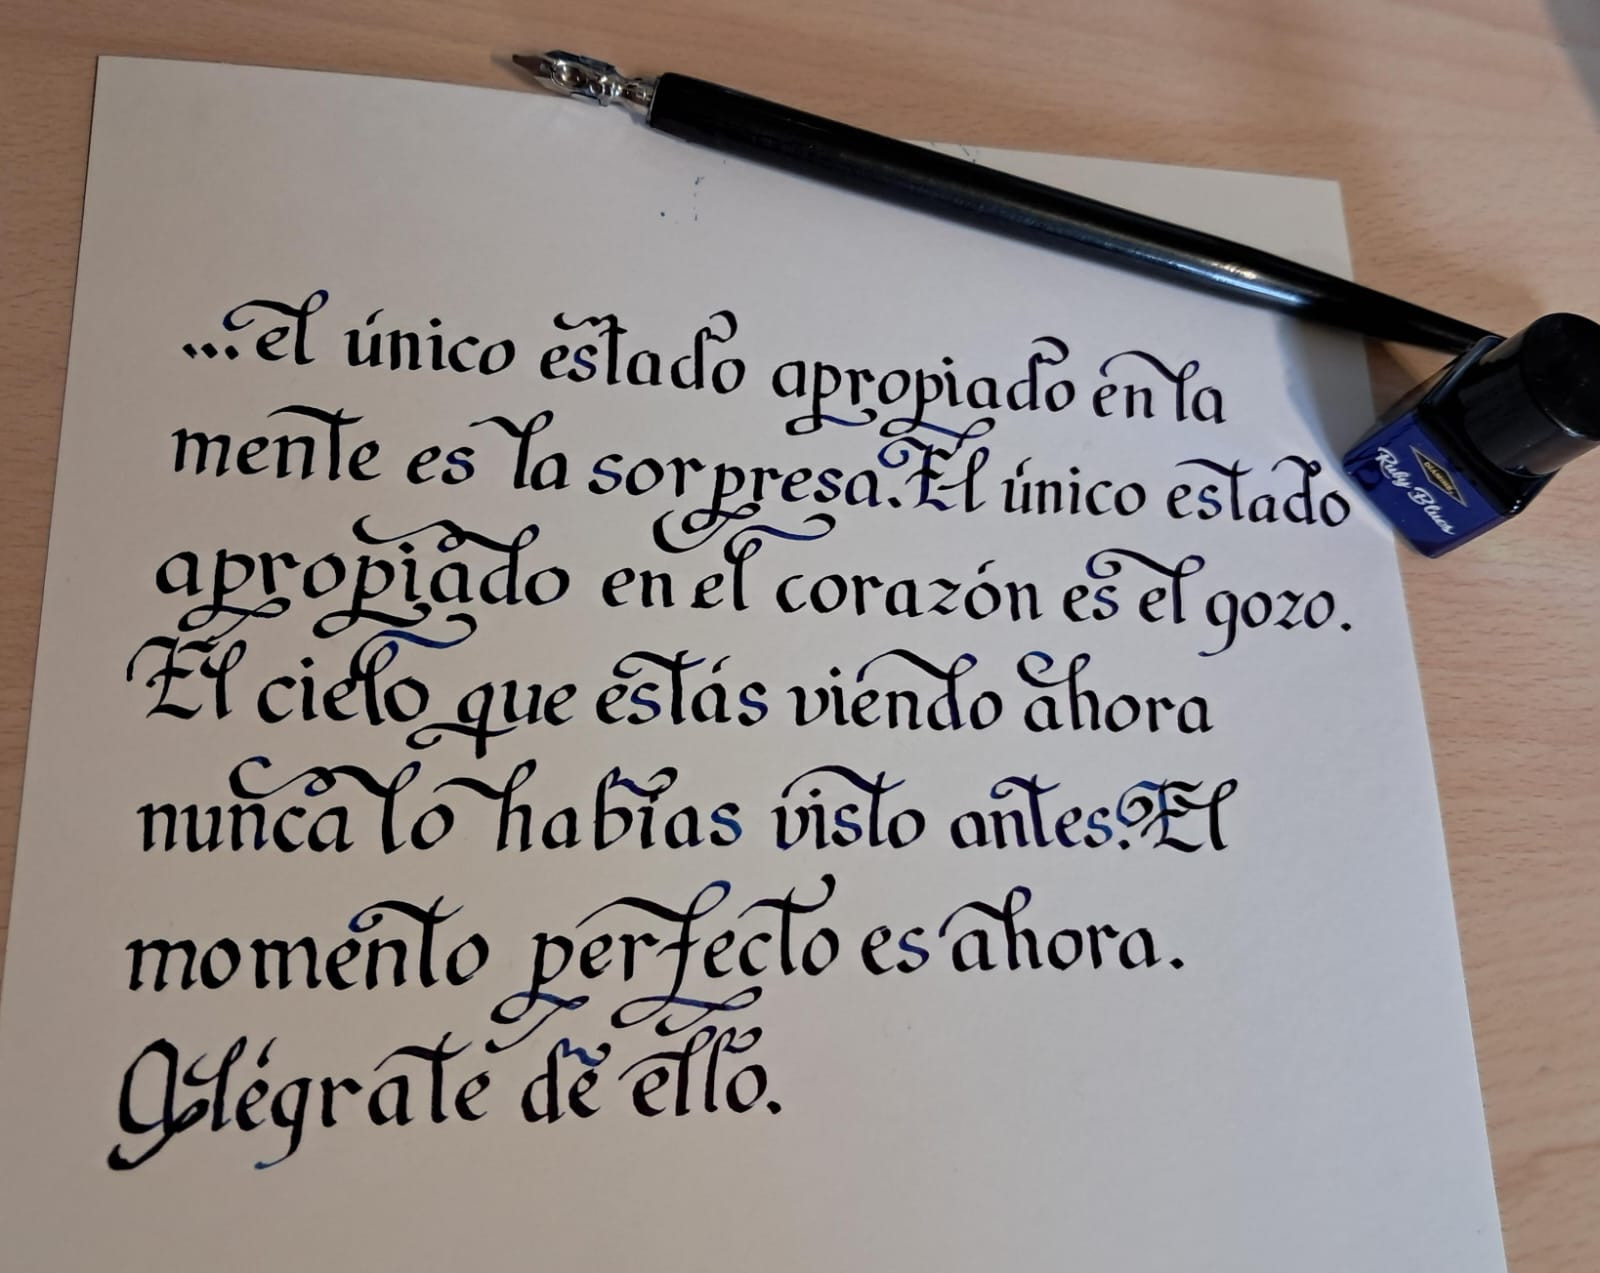 ...el único estado apropiado en la
mente es la sorpresa. El único estado
apropiado en el corazón es el gozo.
El cielo que estás viendo ahora
nunca lo habías visto antes. El
momento perfecto es ahora.
Alégrate de ello.
Ruby Blues
DIAMINE